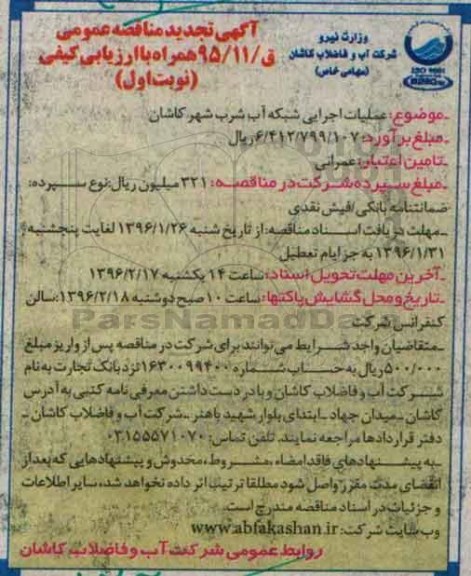 وزارت نیرو
شرکت آب و فاضلاب کاشان
(سهامی خاص)
ISO 9001
آگهی تجدید مناقصه عمومی
ق/۹۵/۱۱ همراه با ارزیابی کیفی
(نوبت اول)
-موضوع: عملیات اجرایی شبکه آب شرب شهر کاشان
-مبلغ برآورد: ۶/۴۱۲/۷۹۹/۱۰۷ ریال
-تامین اعتبار: عمرانی
-مبلغ سپرده شرکت در مناقصه: ۳۲۱ میلیون ریال: نوع سپرده:
ضمانتنامه بانکی/فیش نقدی
-مهلت دریافت اسناد مناقصه: از تاریخ شنبه ۱۳۹۶/۱/۲۶ لغایت پنجشنبه
۱۳۹۶/۱/۳۱ به جز ایام تعطیل
-آخرین مهلت تحویل اسناد: ساعت ۱۴ یکشنبه ۱۳۹۶/۲/۱۷
-تاریخ و محل گشایش پاکتها: ساعت ۱۰ صبح دوشنبه ۱۳۹۶/۲/۱۸: سالن
کنفرانس شرکت
-متقاضیان واجد شرایط می توانند برای شرکت در مناقصه پس از واریز مبلغ
۵۰۰/۰۰۰ ریال به حساب شماره ۱۶۳۰۰۹۹۴۰۰ نزد بانک تجارت به نام
شرکت آب و فاضلاب کاشان و با در دست داشتن معرفی نامه کتبی به آدرس
کاشان - میدان جهاد - ابتدای بلوار شهید باهنر - شرکت آب و فاضلاب کاشان -
دفتر قراردادها مراجعه نمایند. تلفن تماس: ۰۳۱۵۵۵۷۱۰۷۰
-به پیشنهادهای فاقد امضاء، مشروط، مخدوش و پیشنهادهایی که بعد از
انقضای مدت مقرر واصل شود مطلقا ترتیب اثر داده نخواهد شد، سایر اطلاعات
و جزئیات در اسناد مناقصه مندرج است.
وب سایت شرکت: www.abfakashan.ir
روابط عمومی شرکت آب و فاضلاب کاشان
ParsNamadData